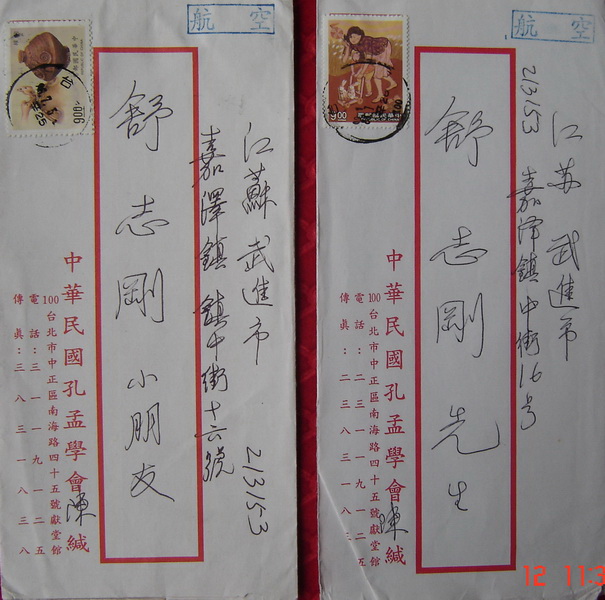 航空
江蘇武進市
213153
嘉澤鎮鎮中街十六號
舒志剛小朋友
中華民國孔孟學會陳緘
100台北市中正區南海路四十五號獻堂館
電話:三一一九一二五
傳眞:三八三一八三八
900
航空
213153
江苏武進市
嘉泽鎮中街16号
舒志剛先生
中華民國孔孟學會陳緘
100台北市中正區南海路四十五號獻堂館
電話:二三一一九一二五
傳眞:二三八三一八三八
9.00
12 11:3